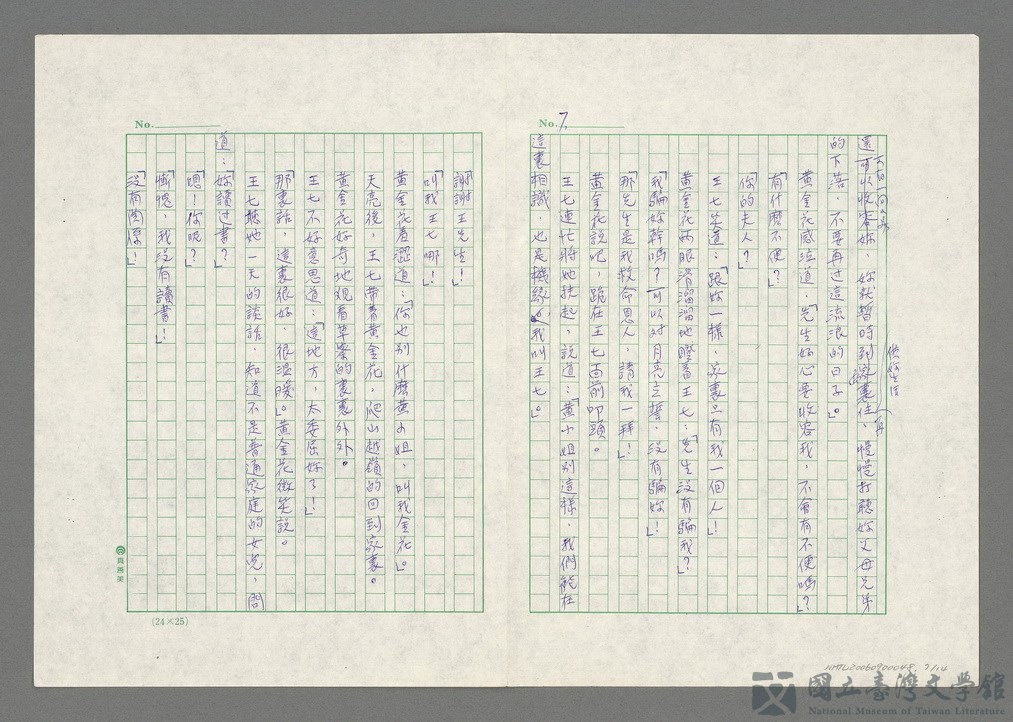 No. 7
還可以收容妳，妳就暫時到家裏住，慢慢打聽妳父母兄弟
供你生活
再
的下落，不要再过這流浪的日子。」
黃金花感泣道：「先生好心要收容我，不會有不便嗎？」
「有什麼不便？」
「你的夫人？」
王七笑道：「跟妳一樣，家裏只有我一個人！」
黃金花兩眼滑溜溜地瞪着王七：「先生沒有騙我？」
「我騙妳幹嗎？可以对月亮立誓，沒有騙妳！」
「那先生是我救命恩人，請我一拜！」
黃金花說吧，跪在王七面前叩頭。
王七連忙將她扶起，說道：「黃小姐別這樣，我們能在
這裏相識，也是機緣，我叫王七。」
No.
「謝謝王先生！」
「叫我王七哪！」
黃金花羞澀道：「你也別什麼黃小姐，叫我金花。」
天亮後，王七帶着黃金花，爬山越嶺的回到家裏。
黃金花好奇地观看草寮的裏裏外外。
王七不好意思道：「這地方，太委屈妳了！」
「那裏話，這裏很好，很溫暖。」黃金花微笑說。
王七聽她一天的談話，知道不是普通家庭的女兒，問
道：「妳讀过書？」
「嗯！你呢？」
「慚愧，我沒有讀書！」
「沒有関係！」
真善美
(24×25)
NMTL20060900048 7/14
國立臺灣文學館
National Museum of Taiwan Literature